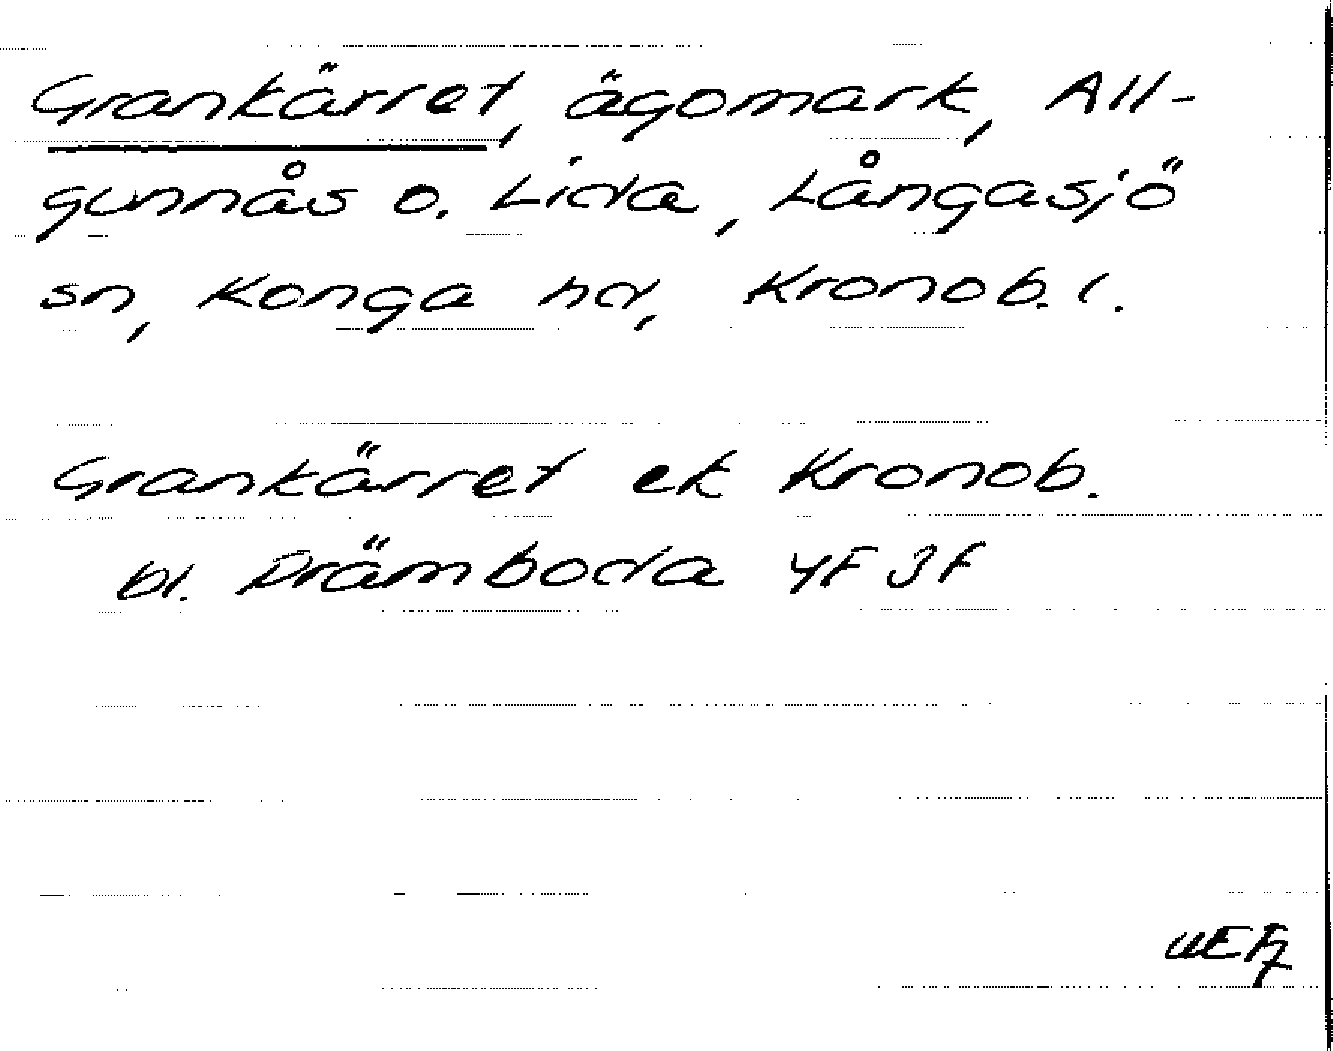 Grankärret, ägomark, All-
gunnås o. Lida, Långasjö
sn, Konga hd, Kronob. l.
Grankärret ek Kronob.
bl. Drämboda 4F 3f